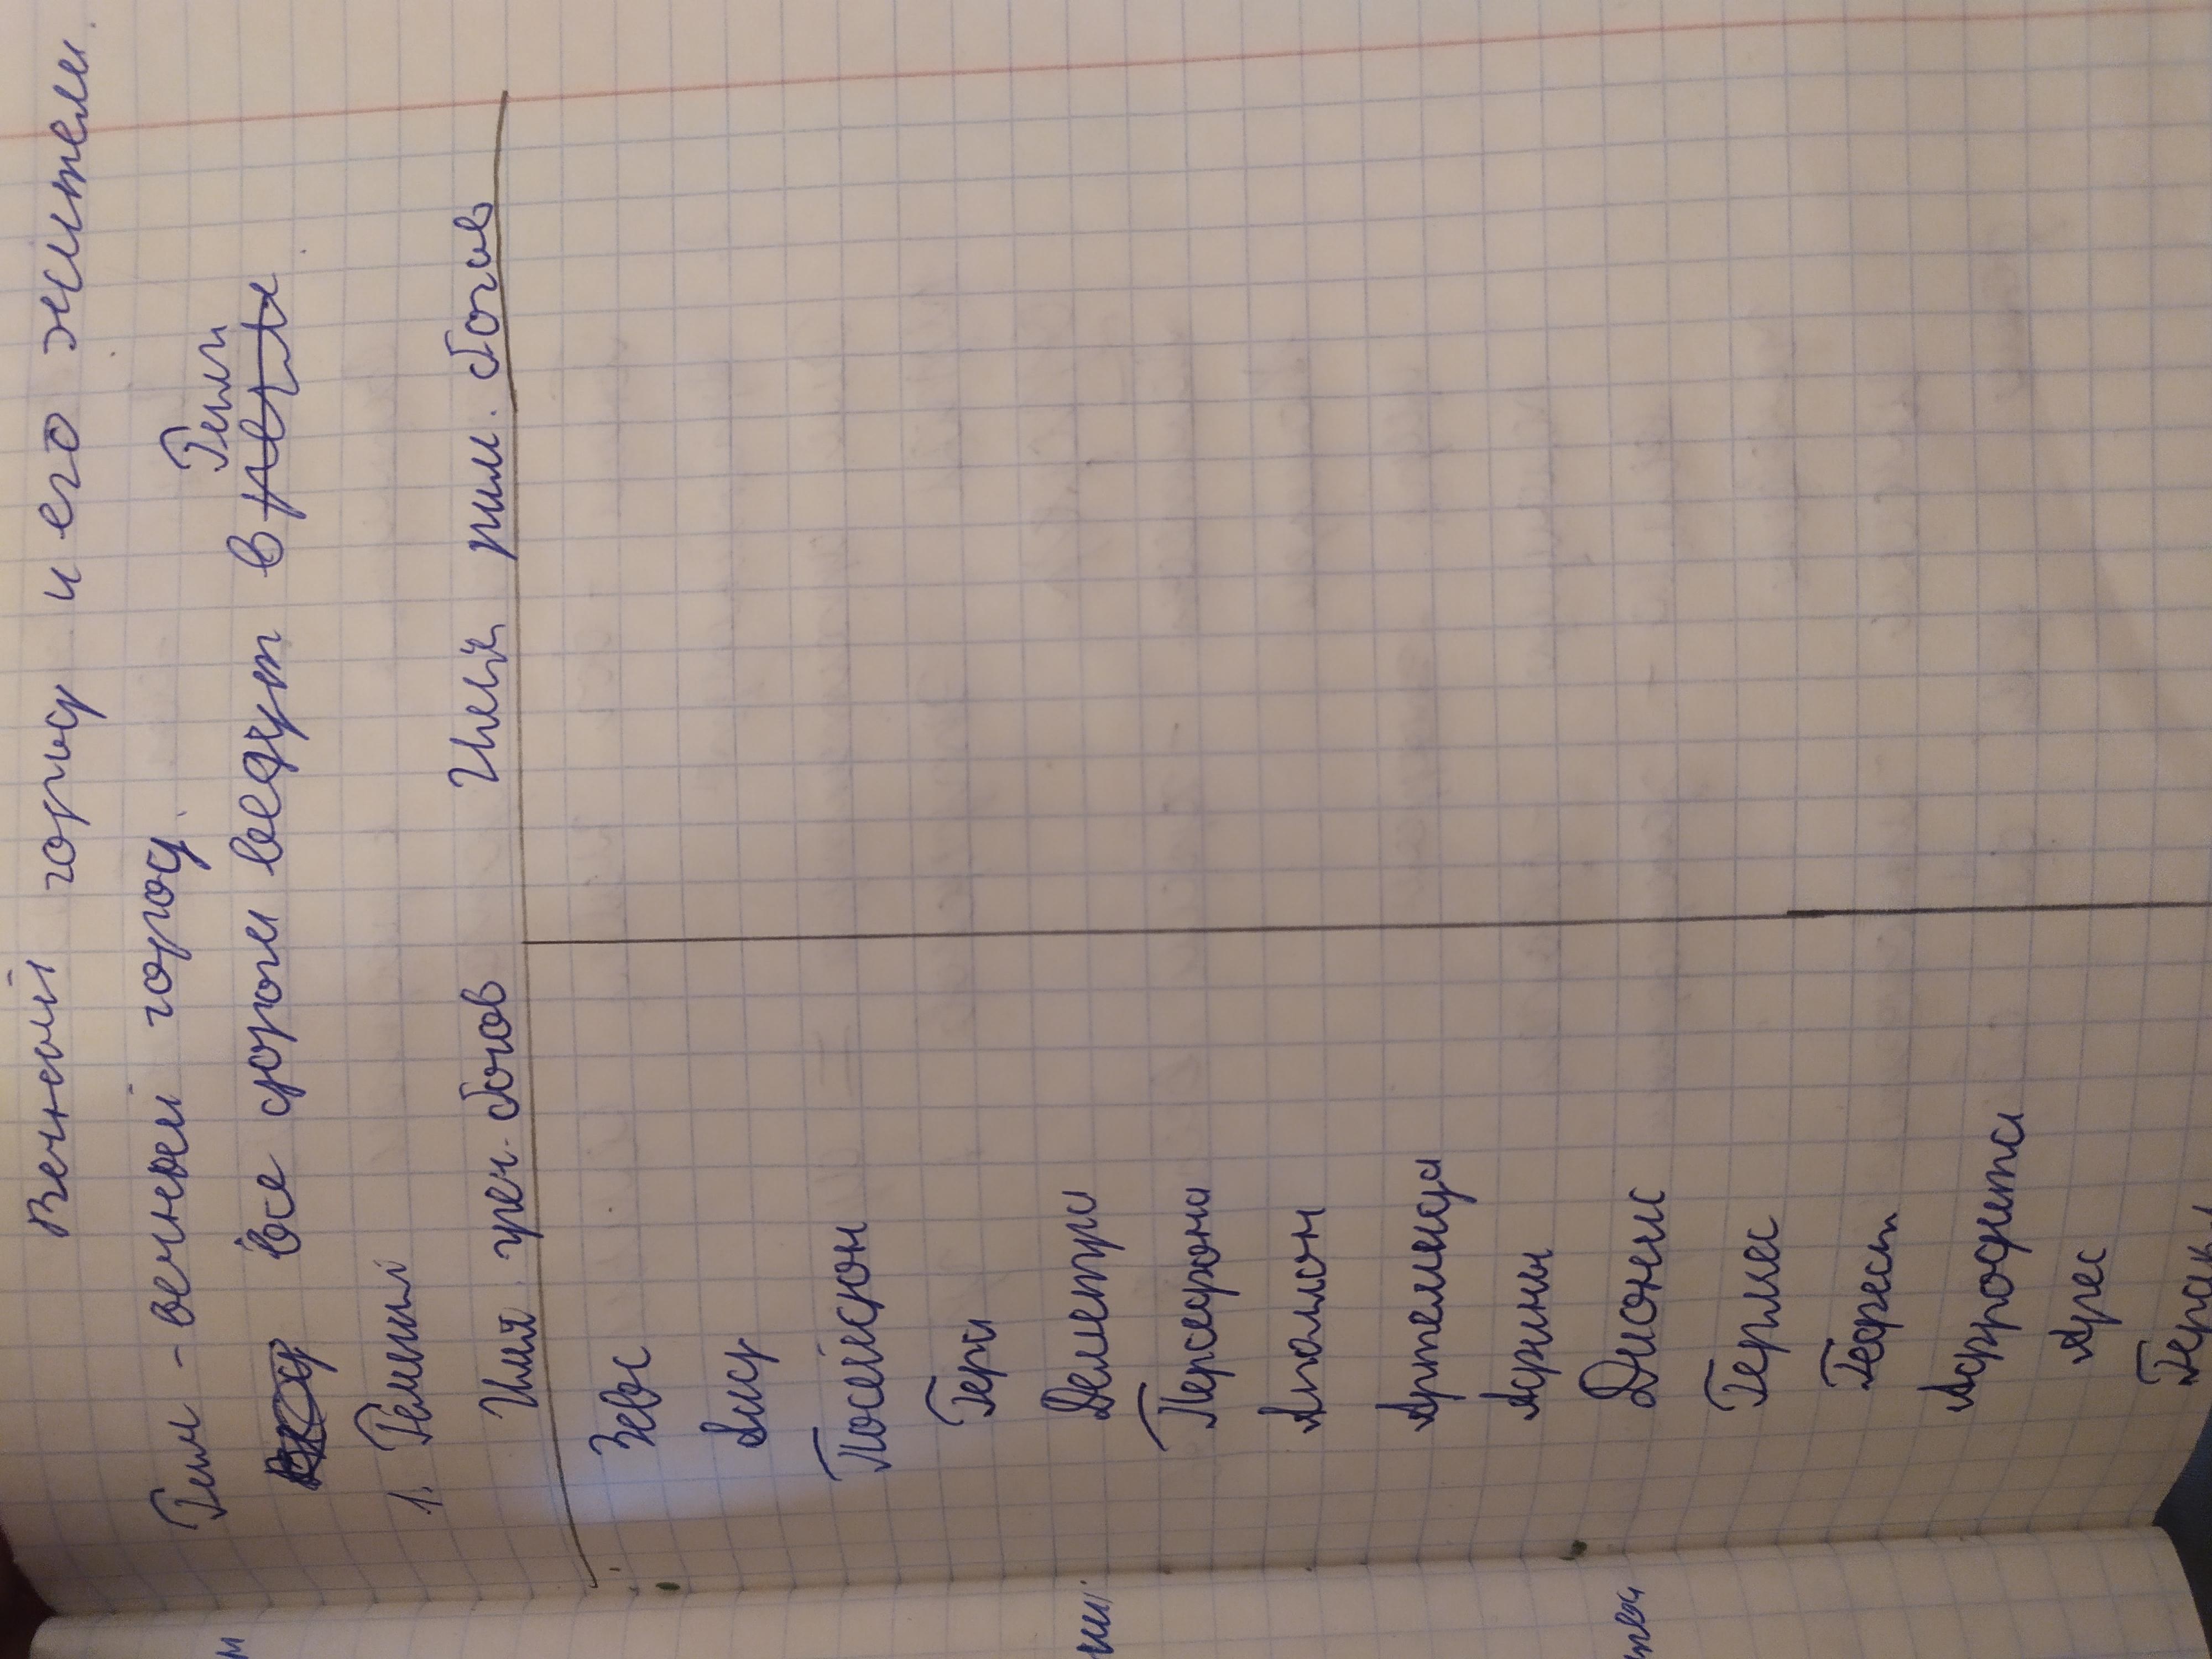 Вечный город и его жители.
Рим - вечный город.
Рим
все дороги ведут в
1. Религии
Имя греч. богов Имя рим. богов
Зевс
Аид
Посейдон
Гера
Деметра
Персефона
Аполлон
Артемида
Афины
Дионис
Гермес
Гефест
Афродита
Арес